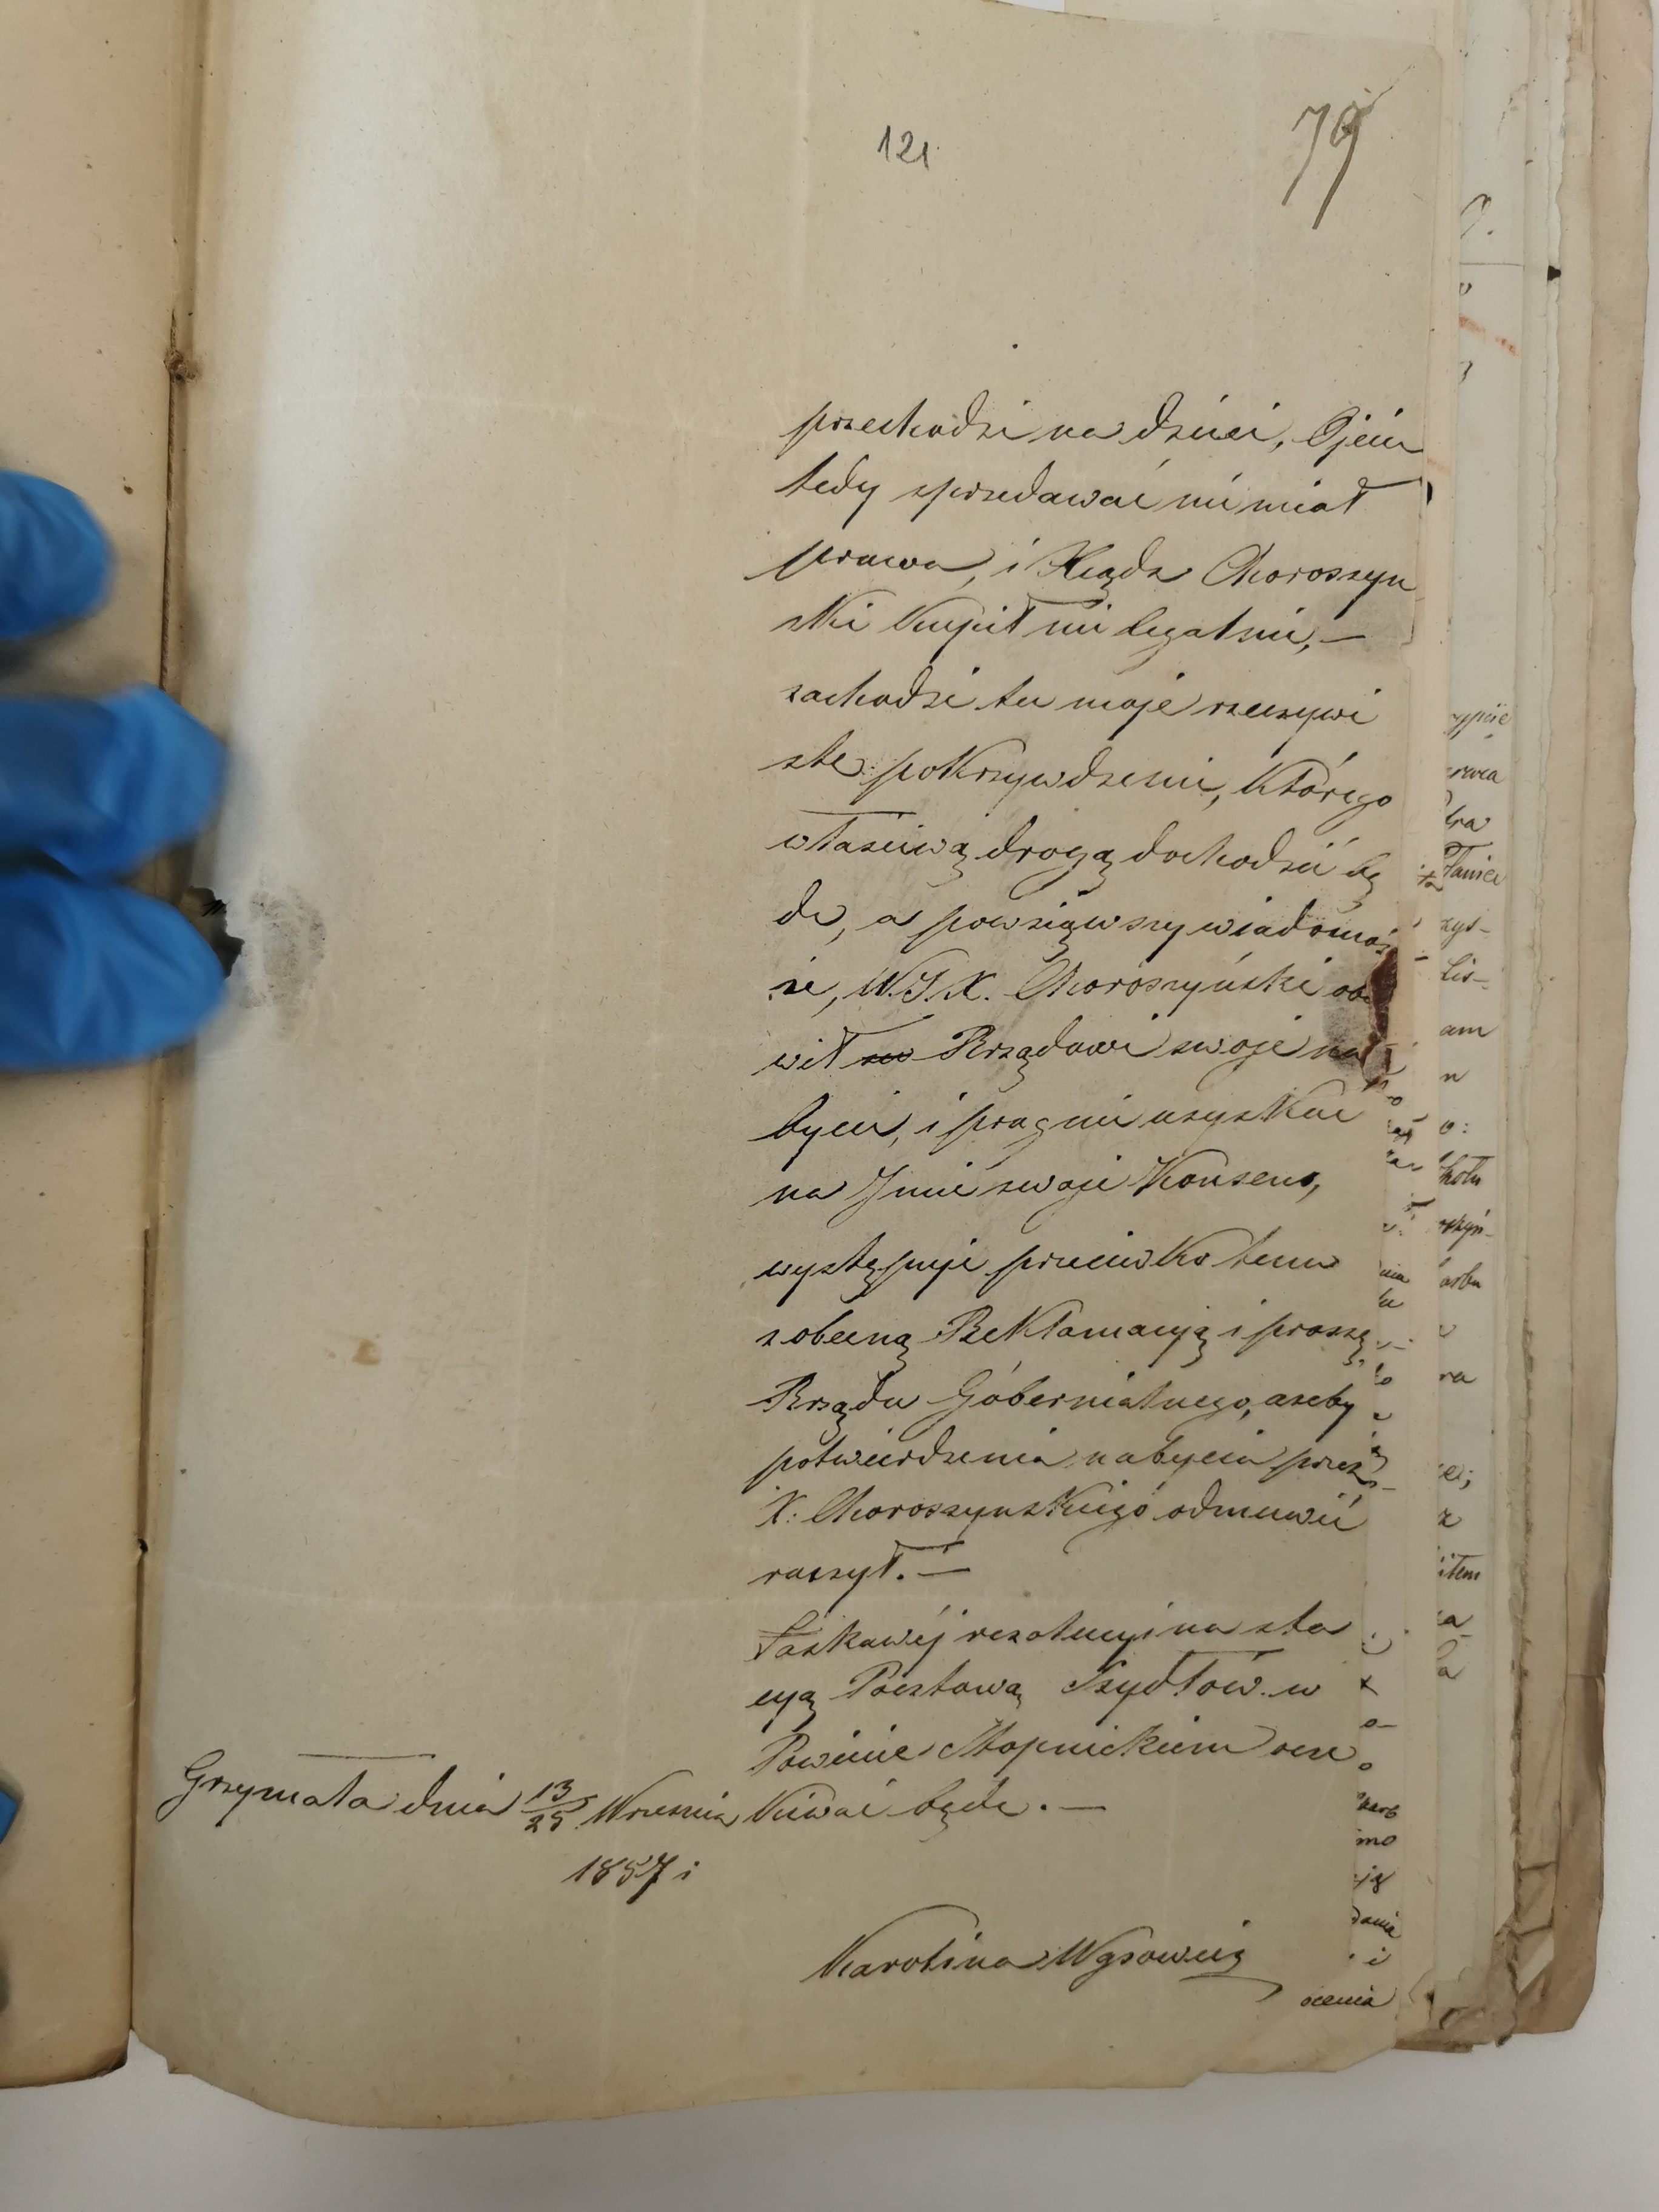 121
79
przechodzi na dzieci, Ojciec
tedy sprzedawać nie miał
prawa, i Xiądz Choroszyn
ski kupił nie legalnie, —
zachodzi tu moje rzeczywi
ste pokrzywdzenie, którego
właściwą drogą dochodzić bę
dę, a powziąwszy wiadomość
że, W.J.X. Choroszyński
wił Rządowi swoje na
bycie, i pragnie uzyskać
na Jmie swoje Konsens,
występuje przeciwko temu
z obecną Reklamacyą i proszę
Rządu Góbernialnego, ażeby
potwierdzenia nabycia przez
X. Choroszynskiego odmówić
raczył. —
Łaskawéj rezolucyi na sta
cyą Pocztową Szydłów w
Powiecie Stopnickiem ocze
kiwać będę. —
Grzymała dnia 13/25 Września
1857
Karolina Wąsowicz